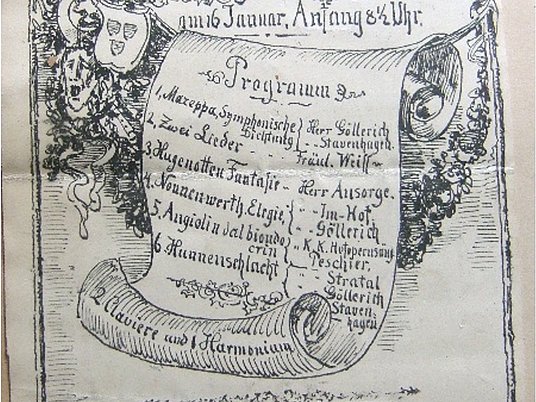 am 16 Januar, Anfang 8½ Uhr.
Programm
1, Mazeppa, Symphonische Dichtung } Herr Göllerich
" Stavenhagen.
2, Zwei Lieder -- Fräul. Weiss
3, Hugenotten Fantasie -- Herr Ansorge.
4, Nonnenwerth, Elegie { " Im-Hof,
" Göllerich
5, Angiolin dal biondo crin { " K. K. Hofopernsäng. Peschier,
6, Hunnenschlacht { " Stratal
Göllerich
Stavenhagen
2 Claviere und 1 Harmonium